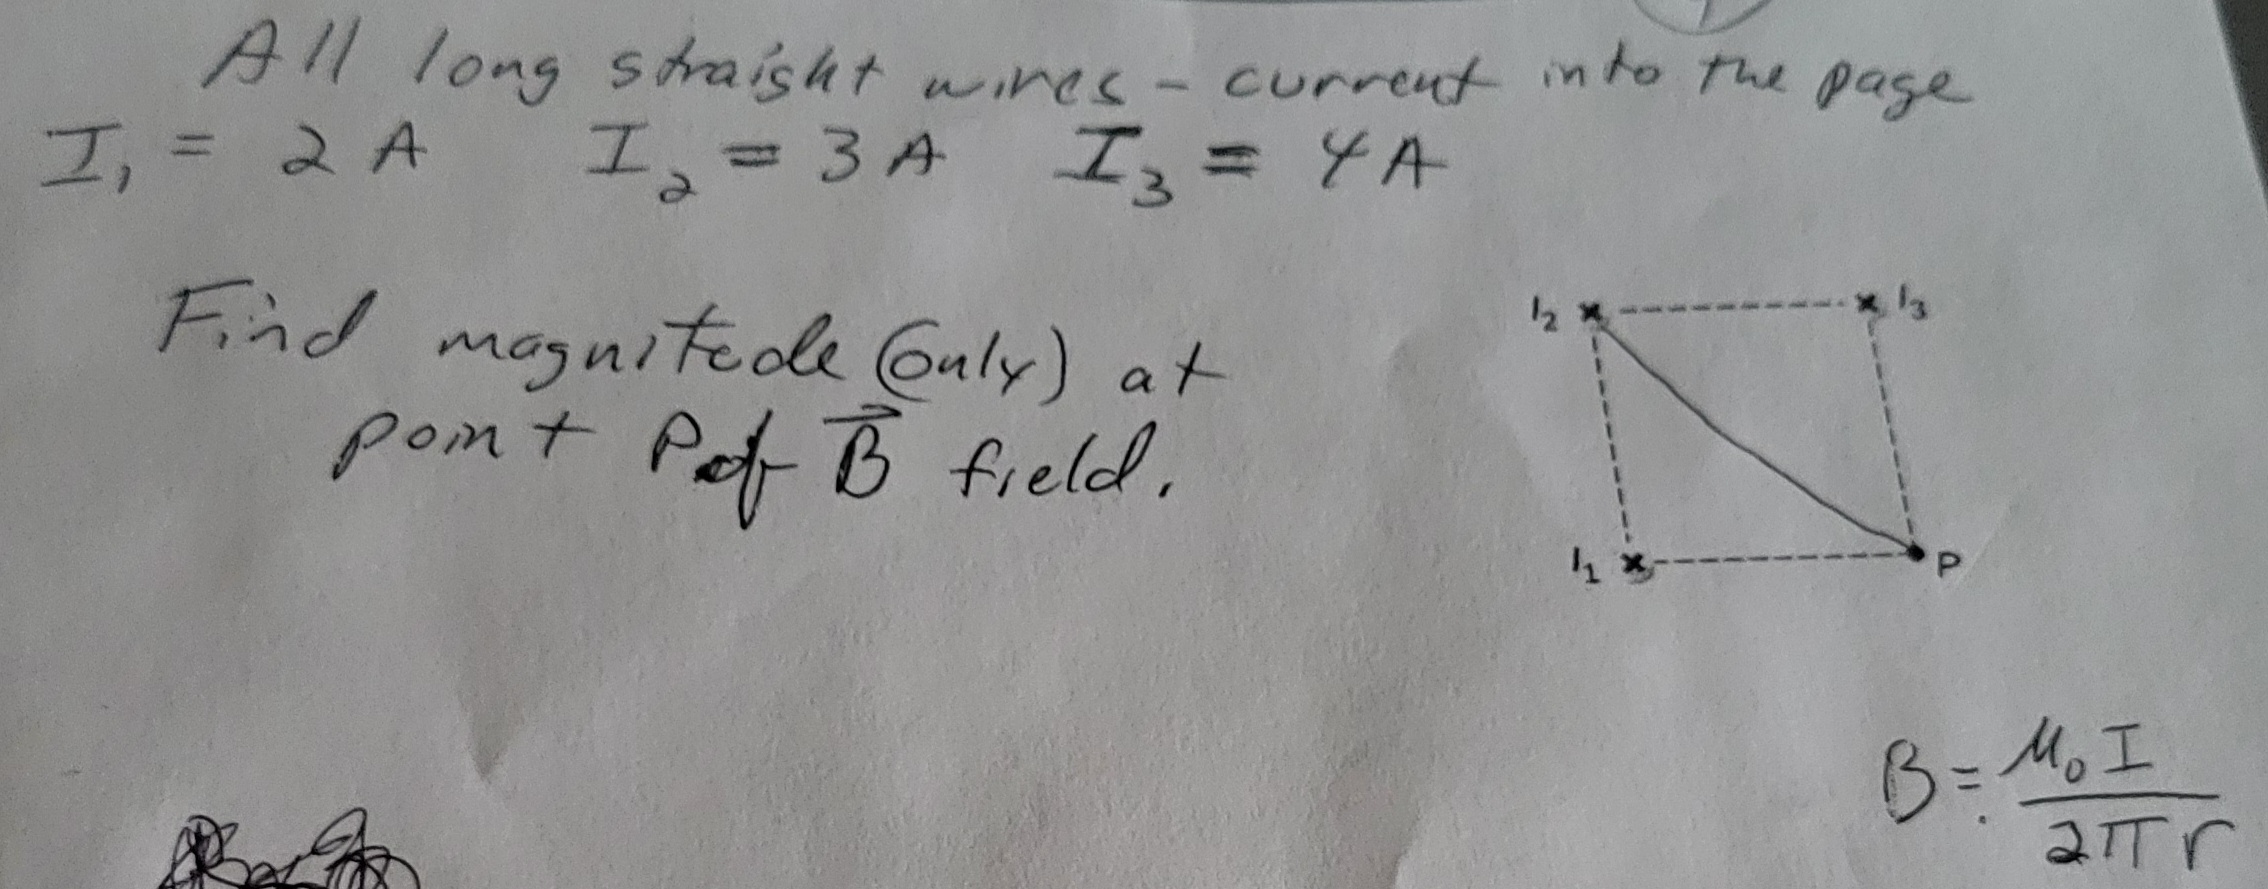 All long straight wires - current into the page
I₁ = 2 A I₂ = 3 A I₃ = 4 A
Find magnitede (only) at
point P of B⃗ field.
I₂ × × I₃
I₁ × P
B = μ₀I / 2πr